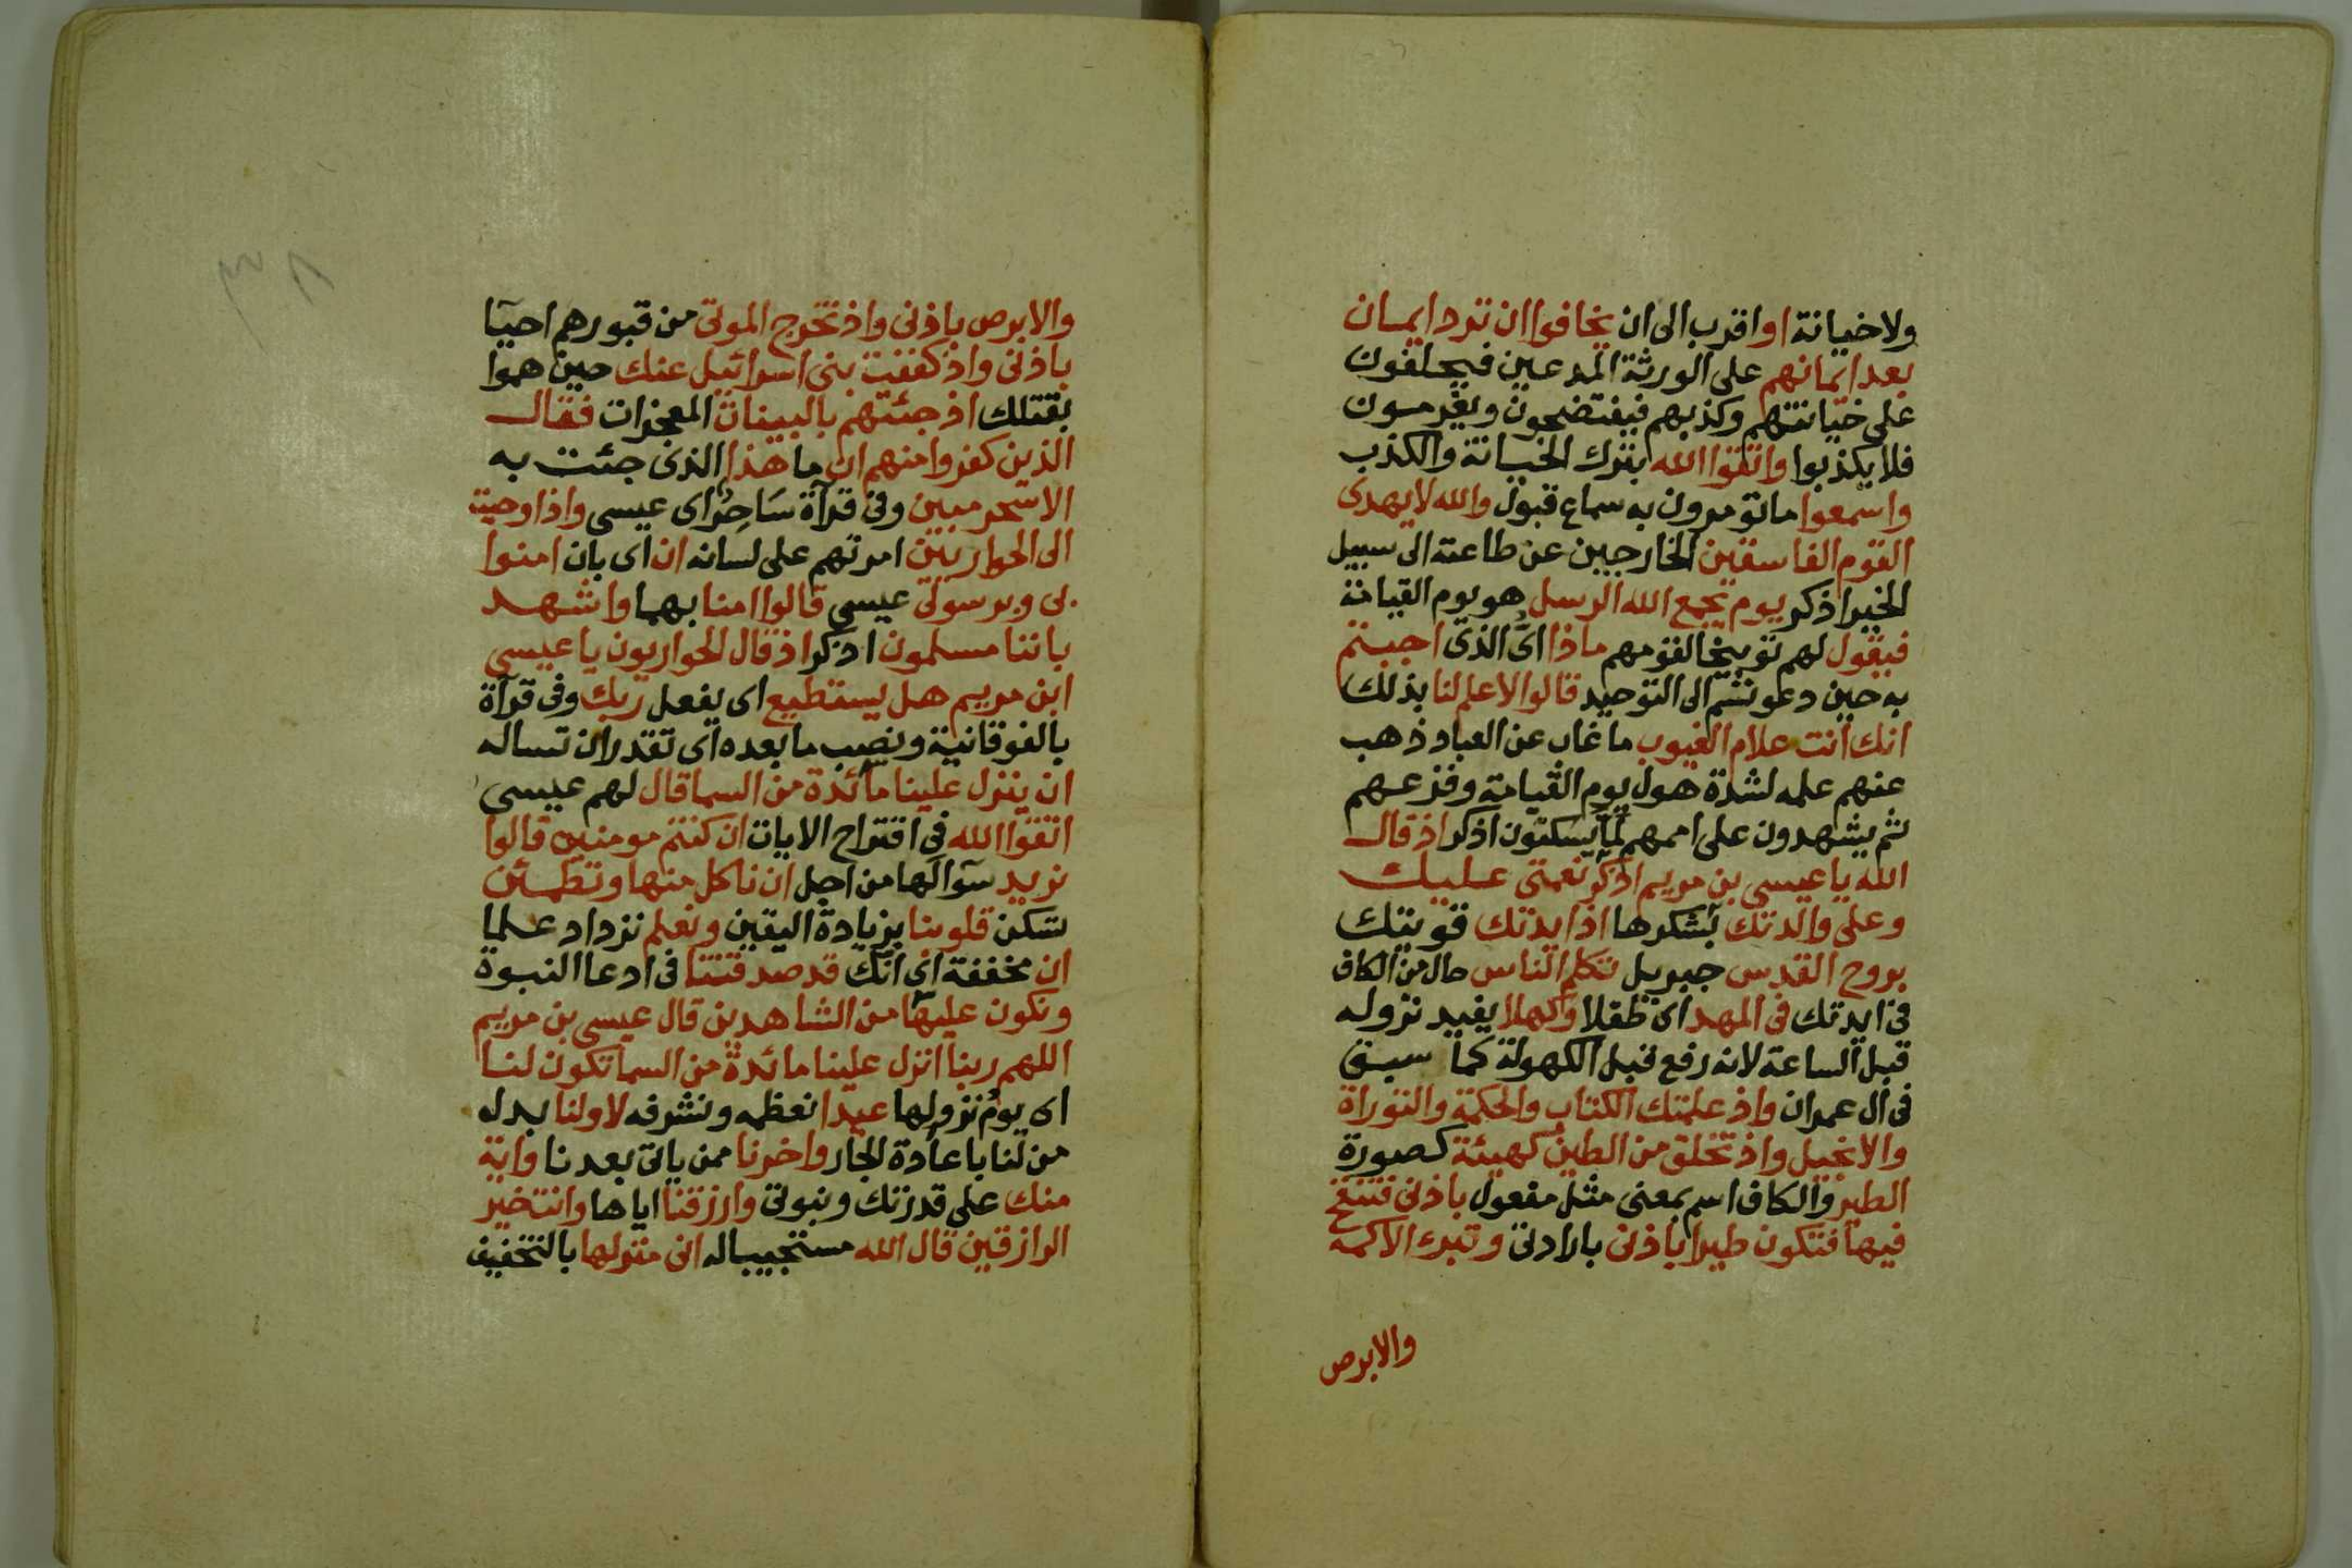 ولا خيانة او اقرب الى ان يخافوا ان ترد ايمان
بعد ايمانهم على الورثة المدعين فيحلفون
على خيانتهم وكذبهم فيفتضحون ويغرمون
فلا يكذبوا واتقوا الله بترك الخيانة والكذب
واسمعوا ما تومرون به سماع قبول والله لا يهدى
القوم الفاسقين الخارجين عن طاعته الى سبيل
الخير اذكر يوم يجمع الله الرسل هو يوم القيامة
فيقول لهم توبيخا لقومهم ماذا اى الذى اجبتم
به حين دعوتم الى التوحيد قالوا لا علم لنا بذلك
انك انت علام الغيوب ما غاب عن العباد ذهب
عنهم علمه لشدة هول يوم القيامة وفزعهم
ثم يشهدون على اممهم لما يسكتون اذكر اذ قال
الله يا عيسى بن مريم اذكر نعمتى عليك
وعلى والدتك بشكرها اذ ايدتك قويتك
بروح القدس جبريل تكلم الناس حال من الكاف
فى ايدتك فى المهد اى طفلا وكهلا يفيد نزوله
قبل الساعة لانه رفع قبل الكهولة كما سبق
فى ال عمران واذ علمتك الكتاب والحكمة والتوراة
والانجيل واذ تخلق من الطين كهيئة كصورة
الطير والكاف اسم بمعنى مثل مفعول باذنى فتنفخ
فيها فتكون طيرا باذنى بارادتى وتبرئ الاكمه
والابرص
والابرص باذنى واذ تخرج الموتى من قبورهم احيآ
باذنى واذ كففت بنى اسرائيل عنك حين هموا
بقتلك اذ جئتهم بالبينات المعجزات فقال
الذين كفروا منهم ان ما هذا الذى جئت به
الا سحر مبين وفى قرآة سَاحِرٌ اى عيسى واذ اوحيت
الى الحواريين امرتهم على لسانه ان اى بان امنوا
بى وبرسولى عيسى قالوا امنا بهما واشهد
باننا مسلمون اذكر اذ قال الحواريون يا عيسى
ابن مريم هل يستطيع اى يفعل ربك وفى قرآة
بالفوقانية ونصب ما بعده اى تقدر ان تساله
ان ينزل علينا مآئدة من السما قال لهم عيسى
اتقوا الله فى اقتراح الايات ان كنتم مومنين قالوا
نريد سوالها من اجل ان ناكل منها وتطمئن
تسكن قلوبنا بزيادة اليقين ونعلم نزداد علما
ان مخففة اى انك قد صدقتنا فى ادعا النبوة
ونكون عليها من الشاهدين قال عيسى بن مريم
اللهم ربنا انزل علينا مائدة من السما تكون لنا
اى يوم نزولها عيدا نعظمه ونشرفه لاولنا بدل
من لنا باعادة الجار واخرنا ممن ياتى بعدنا واية
منك على قدرتك ونبوتى وارزقنا اياها وانت خير
الرازقين قال الله مستجيبا له انى منزلها بالتخفيف